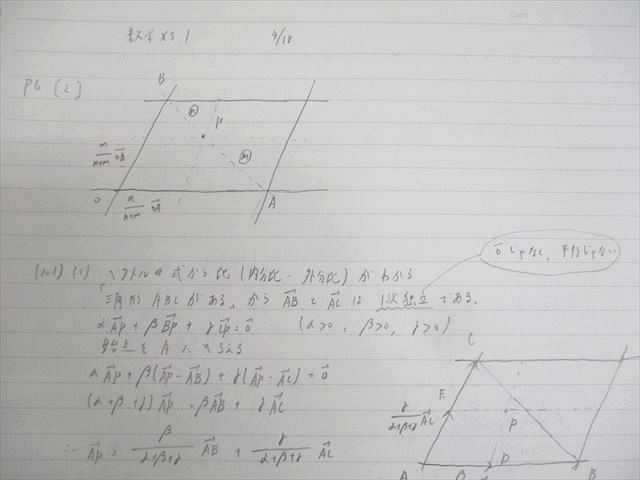 数学XS 1 4/18
P6 [2]
B
n
P
m
m/(n+m) OB→
O
n/(n+m) OA→
A
0→じゃなく、平行じゃない
(1) ベクトルの式から比(内分比・外分比)がわかる
「三角形ABCがある」から AB→ と AC→ は 1次独立である。
αAP→ + βBP→ + γCP→ = 0→ (α>0, β>0, γ>0)
始点をAにそろえる
αAP→ + β(AP→ - AB→) + γ(AP→ - AC→) = 0→
(α+β+γ)AP→ = βAB→ + γAC→
∴ AP→ = β/(α+β+γ) AB→ + γ/(α+β+γ) AC→
C
E
γ/(α+β+γ) AC→
P
A
D
B